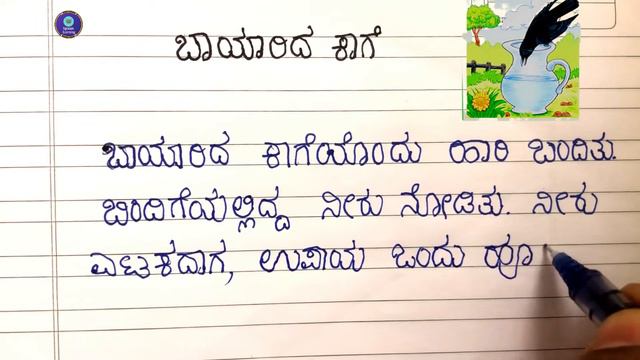 ಬಾಯಾರಿದ ಕಾಗೆ
ಬಾಯಾರಿದ ಕಾಗೆಯೊಂದು ಹಾರಿ ಬಂದಿತು.
ಬಿಂದಿಗೆಯಲ್ಲಿದ್ದ ನೀರು ನೋಡಿತು. ನೀರು
ಎಟಕದಾಗ, ಉಪಾಯ ಒಂದು ಹೂ